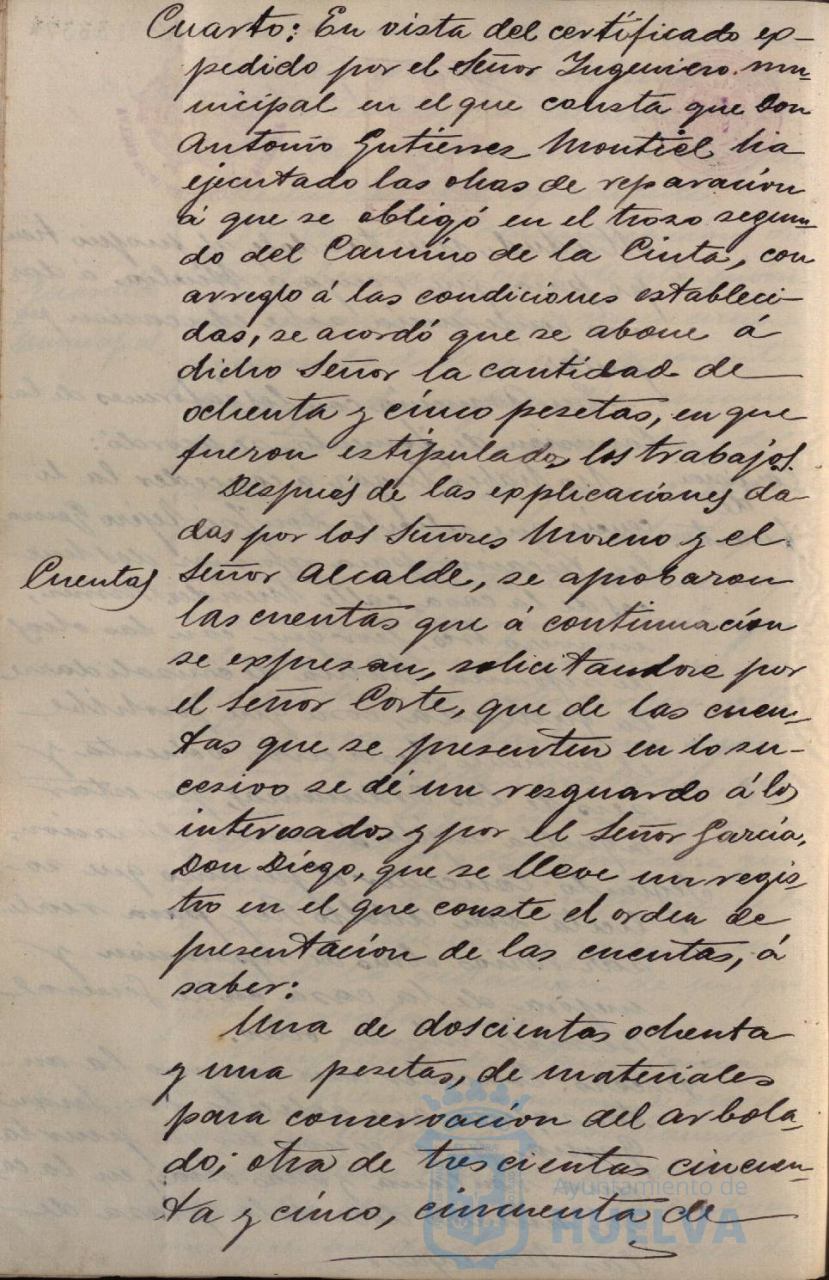 Cuarto: En vista del certificado ex-
pedido por el Señor Ingeniero mu-
nicipal en el que consta que Don
Antonio Gutiérrez Montiel ha
ejecutado las obras de reparación
á que se obligó en el trozo segun-
do del Camino de la Cinta, con
arreglo á las condiciones estableci-
das, se acordó que se abone á
dicho Señor la cantidad de
ochenta y cinco pesetas, en que
fueron estipulados los trabajos.
Después de las explicaciones da-
das por los Señores Moreno y el
Cuentas Señor Alcalde, se aprobaron
las cuentas que á continuación
se expresan, solicitandose por
el Señor Corte, que de las cuen-
tas que se presenten en lo su-
cesivo se dé un resguardo á los
interesados y por el Señor García,
Don Diego, que se lleve un regis-
tro en el que conste el orden de
presentación de las cuentas, á
saber:
Una de doscientas ochenta
y una pesetas, de materiales
para conservación del arbola-
do; otra de trescientas cincuen-
ta y cinco, cincuenta de
Ayuntamiento de
HUELVA